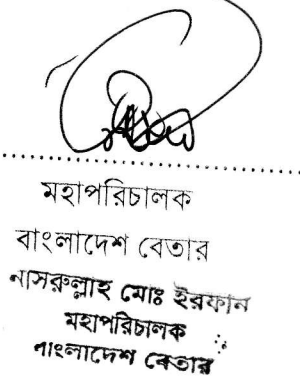 মহাপরিচালক
বাংলাদেশ বেতার
নাসরুল্লাহ মোঃ ইরফান
মহাপরিচালক
বাংলাদেশ বেতার